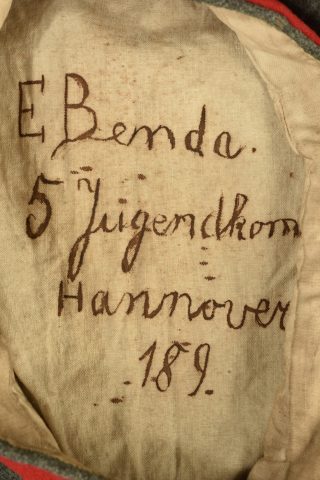 E Benda.
5 n Jugendkom
Hannover
189.